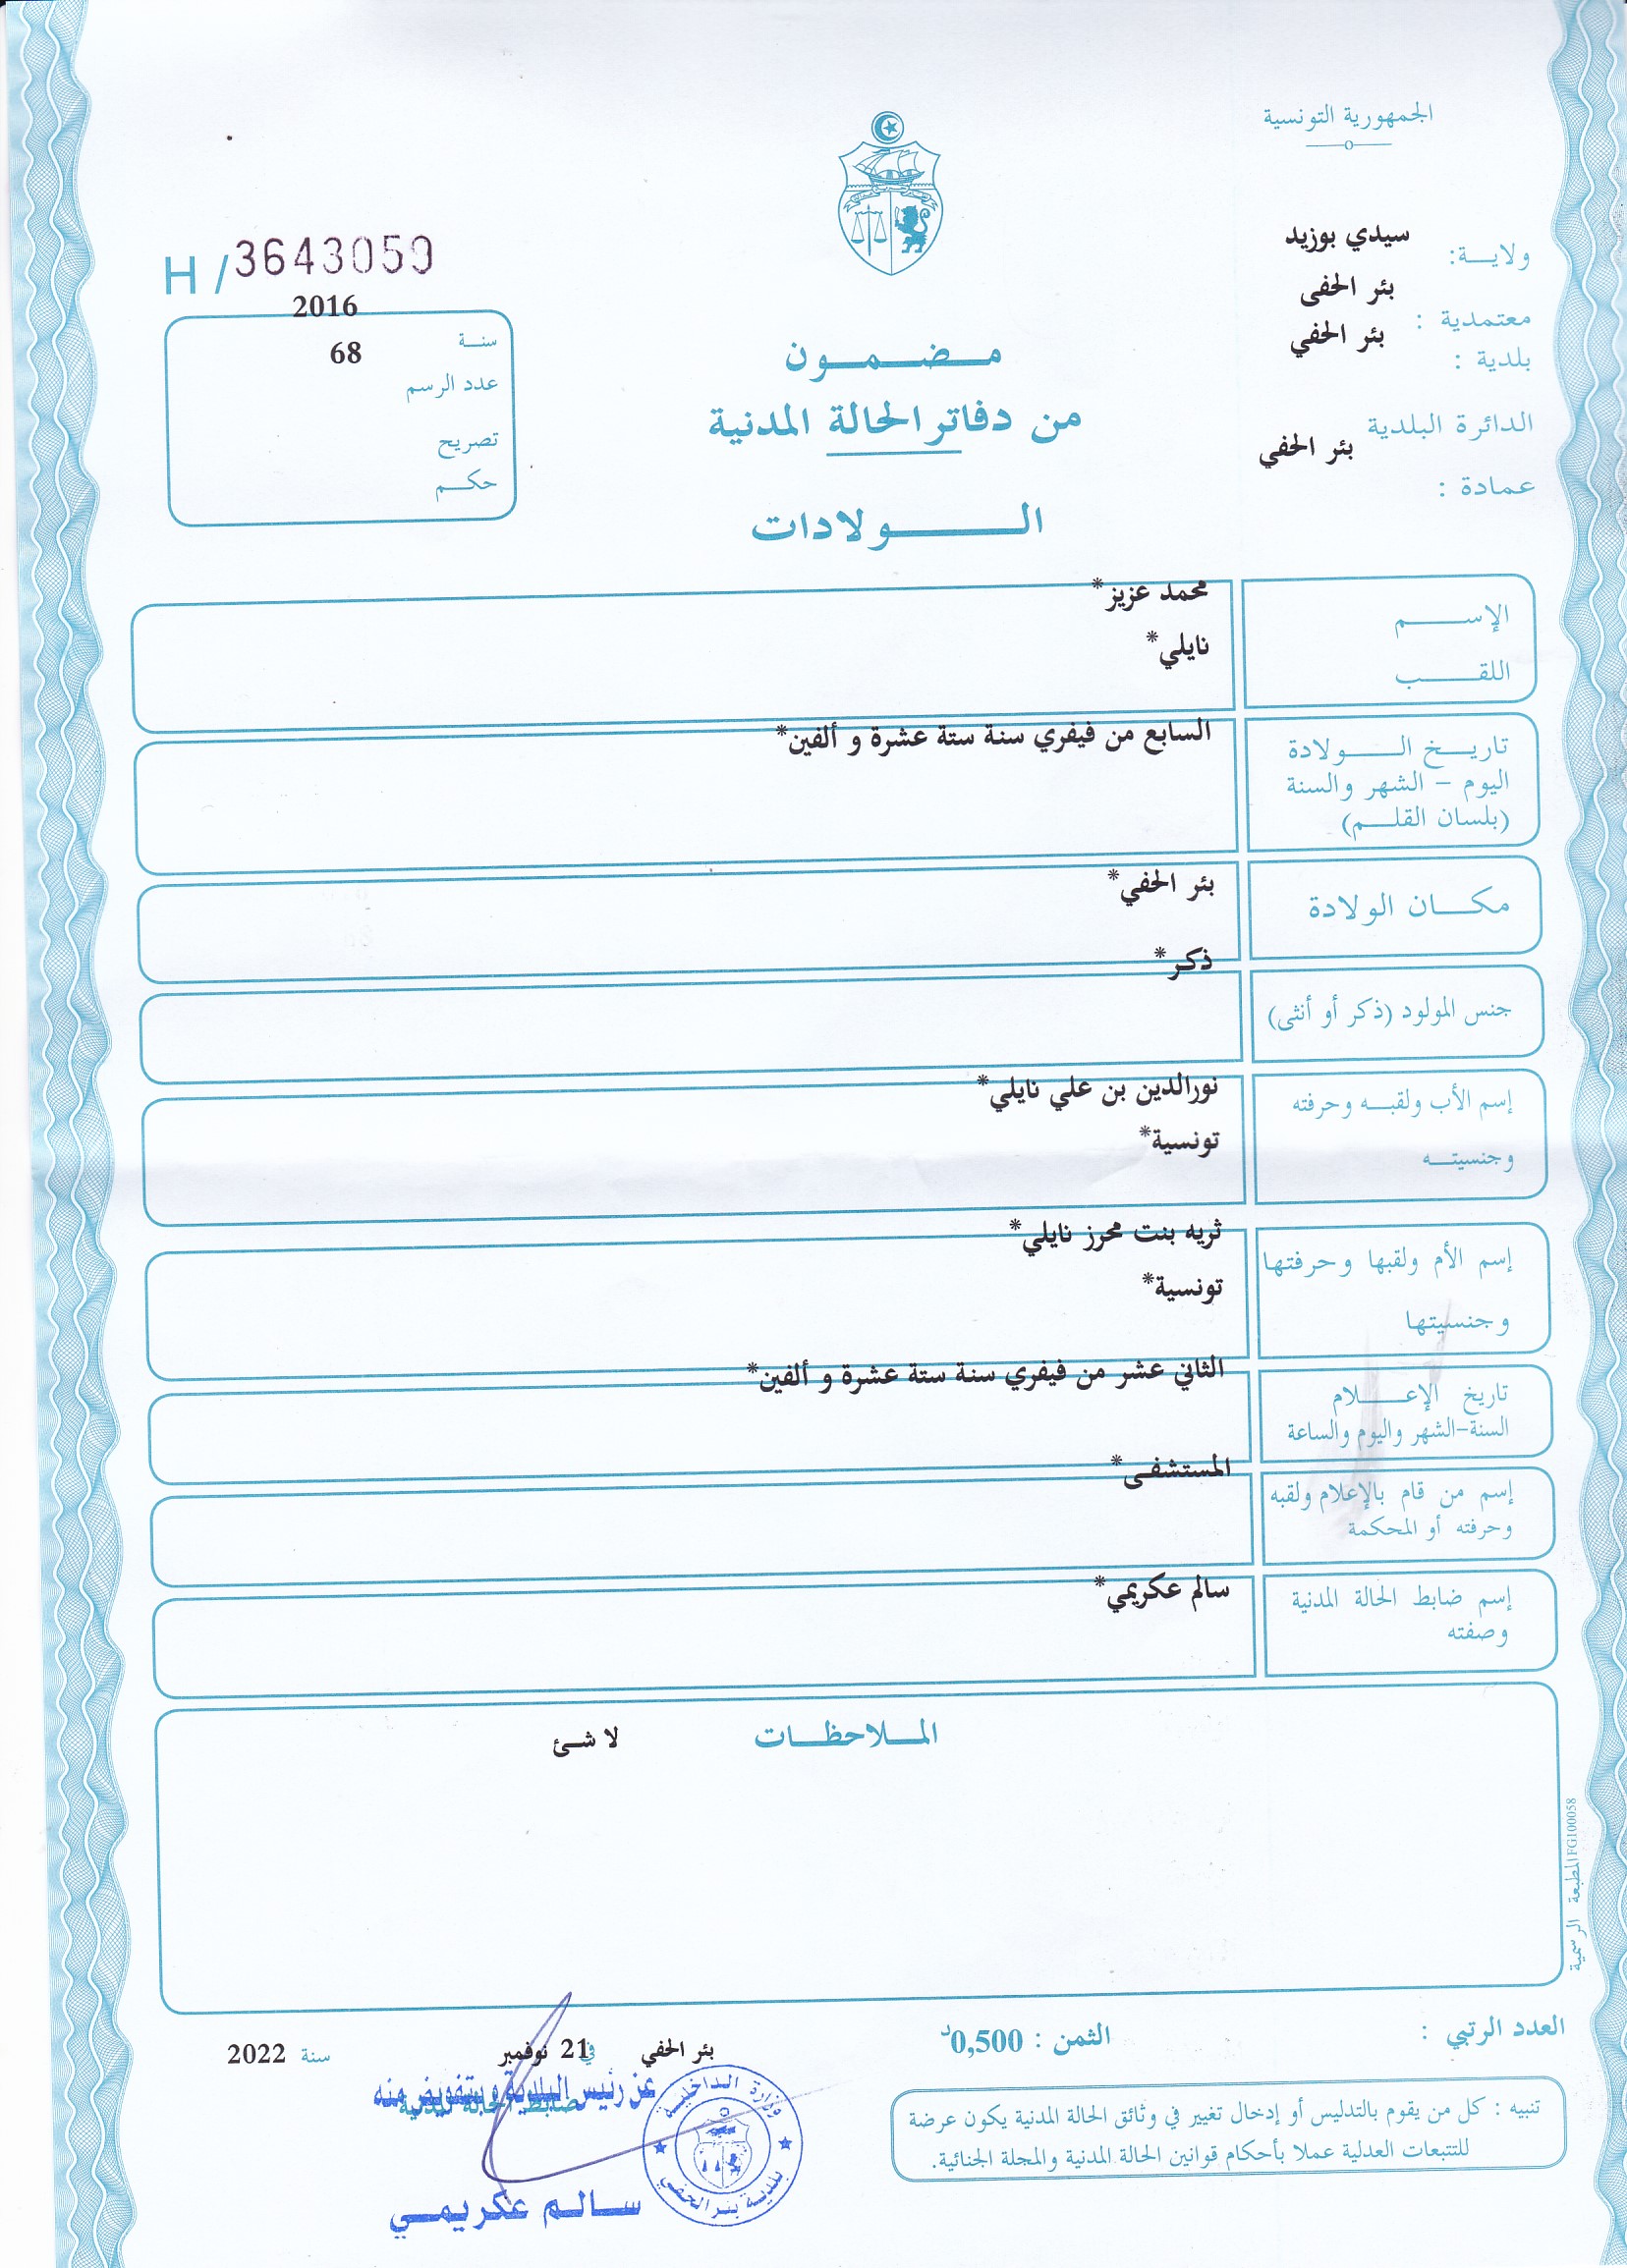 الجمهورية التونسية
ولايــة: سيدي بوزيد
معتمدية : بئر الحفى
بلدية : بئر الحفي
الدائرة البلدية بئر الحفي
عمادة :
H / 3643059
2016
سنــة
68
عدد الرسم
تصريح
حكــم
مــضــمــون
من دفاتر الحالة المدنية
الــولادات
الإســم محمد عزيز*
اللقــب نايلي*
تاريــخ الــولادة السابع من فيفري سنة ستة عشرة و ألفين*
اليوم – الشهر والسنة
(بلسان القلــم)
مكــان الولادة بئر الحفي*
ذكر*
جنس المولود (ذكر أو أنثى)
إسم الأب ولقبــه وحرفته نورالدين بن علي نايلي*
وجنسيتــه تونسية*
إسم الأم ولقبها وحرفتها ثريه بنت محرز نايلي*
وجنسيتها تونسية*
تاريخ الإعــلام الثاني عشر من فيفري سنة ستة عشرة و ألفين*
السنة-الشهر واليوم والساعة
المستشفى*
إسم من قام بالإعلام ولقبه
وحرفته أو المحكمة
إسم ضابط الحالة المدنية سالم عكريمي*
وصفته
المــلاحظــات لا شئ
المطبعة الرسمية FG100058
العدد الرتبي :
الثمن : 0,500د
بئر الحفي في 21 نوفمبر سنة 2022
عن رئيس البلدية و بتفويض منه
ضابط الحالة المدنية
وزارة الداخلية
بلدية بئر الحفي
سـالـم عكريمـي
تنبيه : كل من يقوم بالتدليس أو إدخال تغيير في وثائق الحالة المدنية يكون عرضة
للتتبعات العدلية عملا بأحكام قوانين الحالة المدنية والمجلة الجنائية.